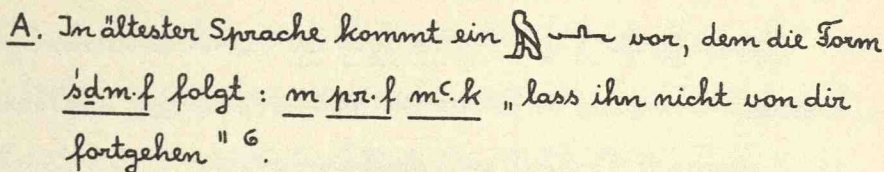 A. In ältester Sprache kommt ein 𓅓𓂜 vor, dem die Form
śḏm·f folgt : m pr·f mꜥ·k „ lass ihn nicht von dir
fortgehen " ⁶.